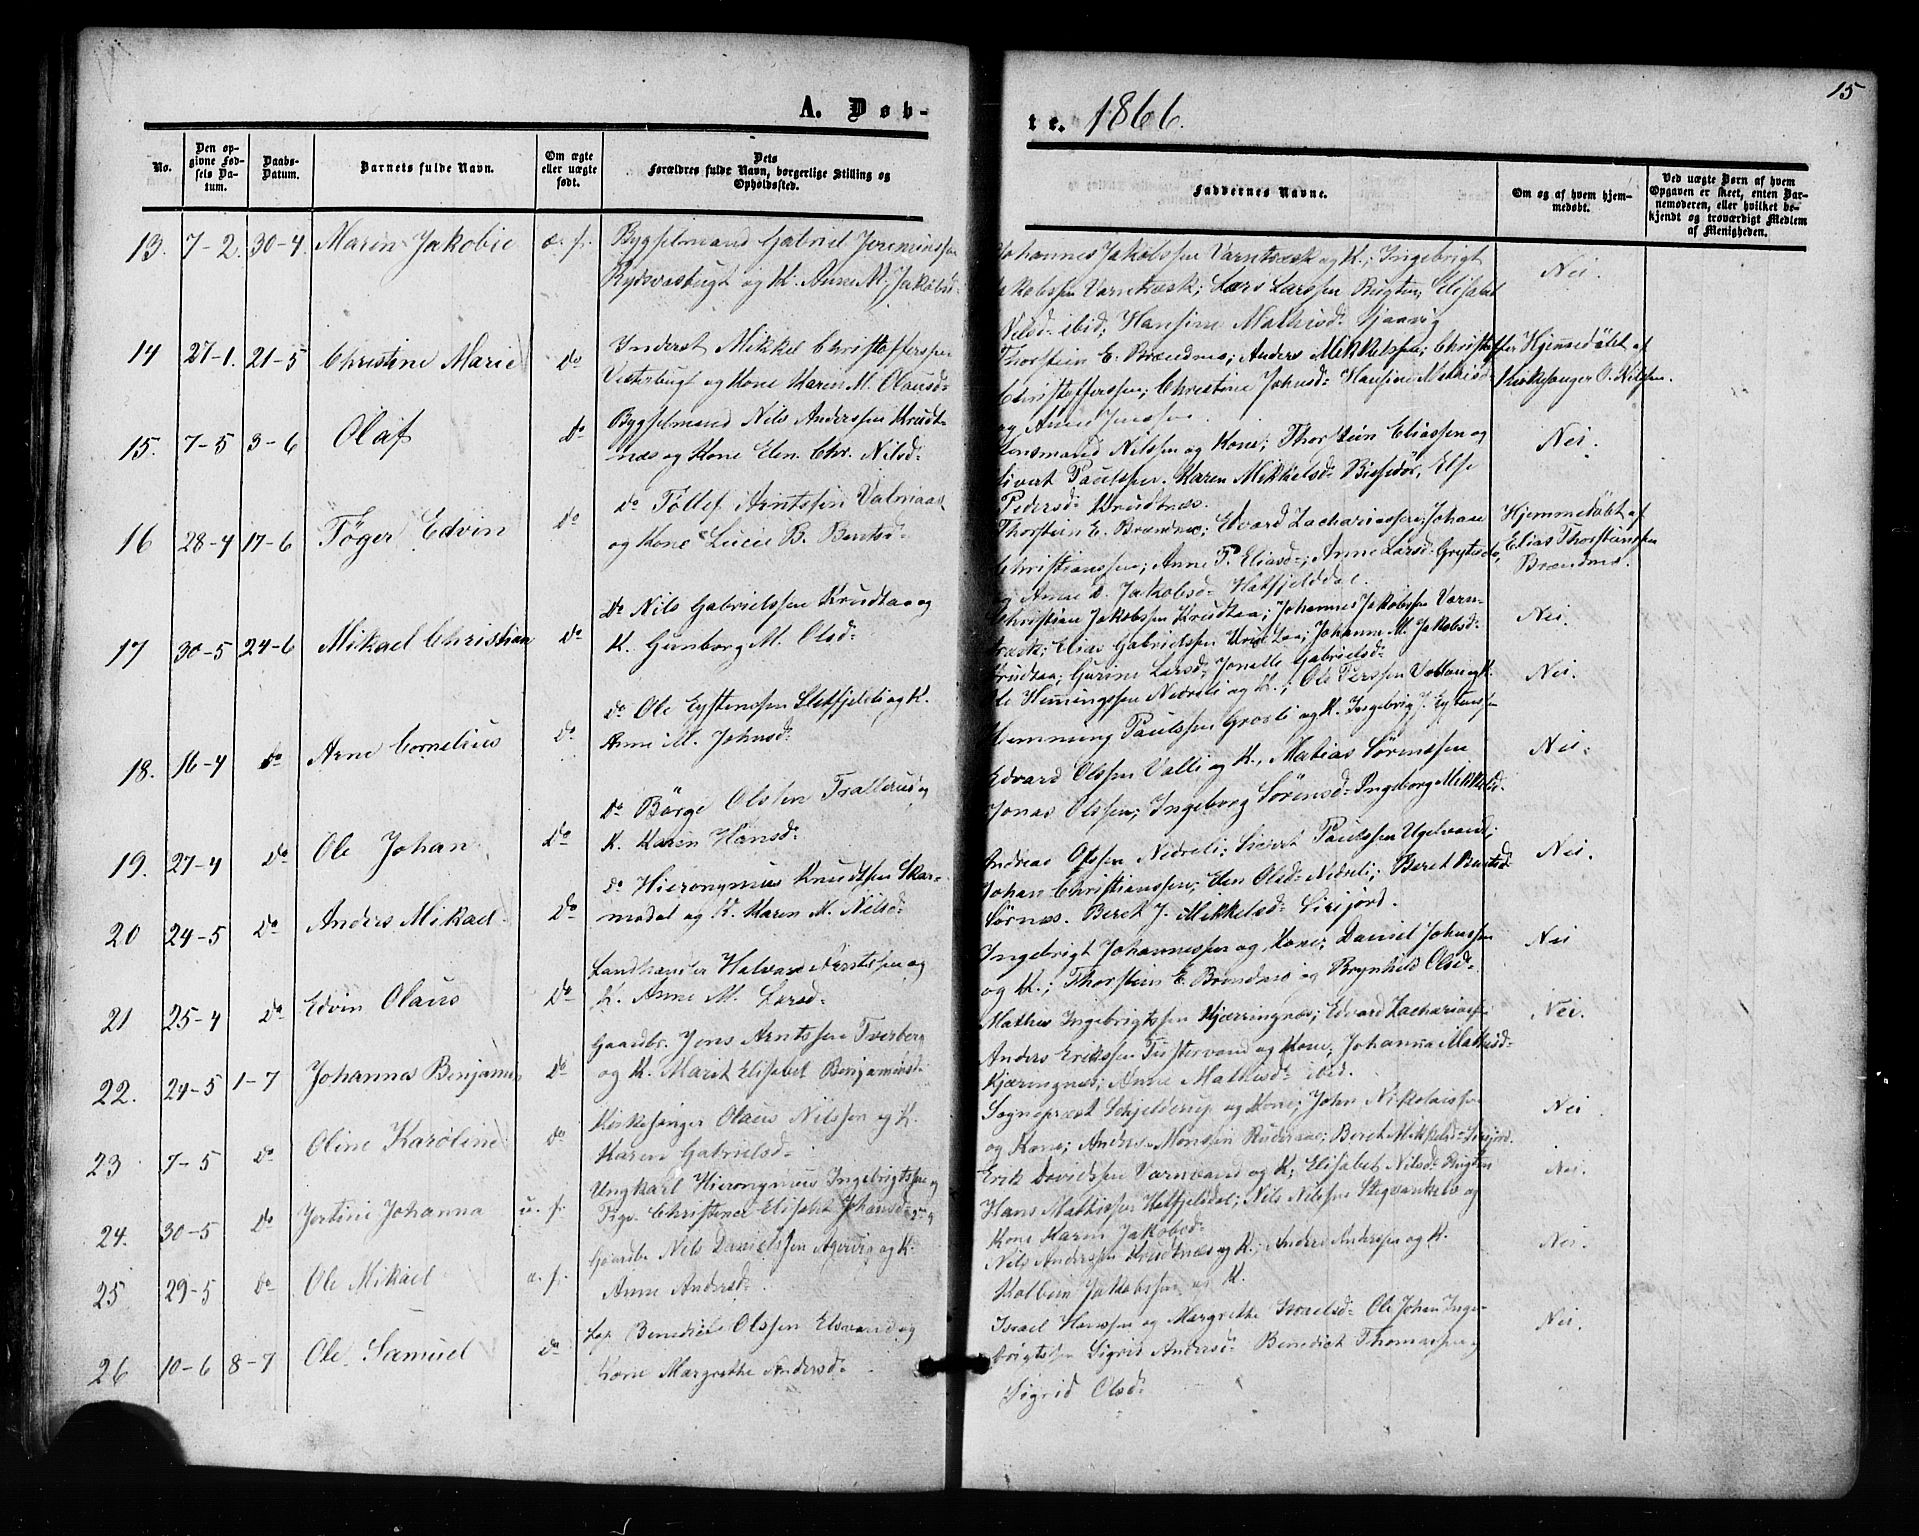 15
A. Døb-
te. 1866.
No.
Den op-
givne Fød-
sels Da-
tum.
Daabs-
Datum.
Barnets fulde Navn.
Om ægte
eller uægte
født.
Dets
Forældres fulde Navn, borgerlige Stilling og
Opholdssted.
Faddernes Navne.
Om og af hvem hjem-
medøbt.
Ved uægte Børn af hvem
Opgaven er skeet, enten Bar-
nemoderen, eller hvilket be-
kjendt og troværdigt Medlem
af Menigheden.
13. 7-2. 30-4. Maren Jakobie æ. f. Bygselmand Gabriel Jeremiassen
og K. Anne M. Jakobsd-
Johannes Jakobssen Varntræsk og K.; Ingebrigt
Jakobssen Varntræsk; Lars Larssen Bugten; Elisabet
Nilsd- ibid; Hansine Mathisd-
Nei.
14 27-1. 21-5 Christine Marie do Inderst Mikkel Christofferssen
Vesterbugt og Kone Karen M. Olausd-
Thorstein E. Brændnæs; Anders Mikkelssen; Christoffer
Christofferssen; Christine Johnsd- Hansine Mathisd-
og Anne
Hjemmedøbt af
Kirkesanger O. Nilssen.
15. 7-5 3-6 Olaf do Bygselmand Nils Anderssen Krudt-
næs og Kone Elen Chr. Nilsd-
Nilssen og Kone; Thorstein Eliassen og
Sivert Paulssen. Karen Mikkelsd- Else
Pedersd- Krudtnæs.
Nei.
16 28-4 17-6 Tøger Edvin do do Tollef Arntssen
og Kone Lucie B. Berntsd-
Thorstein E. Brændnæs; Edvard Zachariassen; Johan
Christianssen; Anne P. Eliasd-; Anne Larsd-
og Anne D. Jakobsd- Hatfjelddal.
Hjemmedøbt af
Elias Thorsteinssen
Brændnæs.
17 30-5 24-6 Mikael Christian do do Nils Gabrielssen Krudtaa og
K. Gunborg M. Olsd-
Christian Jakobssen Krudtaa; Johannes Jakobssen Varn-
træsk; Elias Gabrielssen Krudtaa; Johanne M. Jakobsd-
Krudtaa; Gurine Larsd-; Jonette Gabrielsd-
Nei.
18. 16-4 do Arne Cornelius do do Ole Eystenssen og K.
Anne M. Johnsd-
Ole Hemingssen Nedreli og K.; Ole
Hemming Paulssen Grosli og K. Ingebrig J. Eystenssen
Nei.
19. 27-4 do Ole Johan do do Børge Olssen og
K. Karen Hansd-
Edvard Olssen Valli og K., Matias Sørenssen
Jonas Olssen; Ingeborg Sørensd- Ingeborg Mikkelsd-
Nei.
20 24-5 do Anders Mikael do do Hieronymus Knudtssen Skar-
modal og K. Karen M. Nilsd-
Andreas Olssen Nedreli; Sivert Paulssen Ugelvand;
Johan Christianssen; Elen Olsd- Nedreli; Beret Berntsd-
Sørnæs. Beret J. Mikkelsd- Sirijord.
Nei.
21 25-4 do Edvin Olaus do Landhandler Halvar Arntssen og
K. Anne M. Larsd-
Ingebrigt Johannessen og Kone; Daniel Johnssen
og K.; Thorstein E. Brændnæs og Brynhild Olsd-
Nei
22. 24-5 1-7 Johannes Benjamin do Gaardbr. Jons Arntssen Tverberg
og K. Marit Elisabet Benjaminsd-
Mathis Ingebrigtssen Kjærringnæs; Edvard Zachariassen
Anders Erikssen Tustervand og Kone; Johanna Mathisd-
Kjæringnæs; Anne Mathisd- ibid.
Nei.
23 7-5 do Oline Karoline do Kirkesanger Olaus Nilssen og K.
Karen Gabrielsd-
Sognepræst Schjelderup og Kone; John Nikolaissen
og Kone; Anders Monssen; Beret Mikkelsd- Sirijord.
Nei
24. 30-5 do Jertine Johanna u. f. Ungkarl Hieronymus Ingebrigtssen og
Pige Christine Elisabet Johansd-
Erik Davidssen Varnvand og K; Elisabet Nilsd- Bugten
Hans Mathissen Hatfjeldal; Nils Nilssen og
Kone Karen Jakobsd-
Nei.
25 29-5 do Ole Mikael æ. f. Gaardbr Nils Danielssen og K.
Anne Andersd-
Nils Anderssen Krudtnæs og K; Anders Anderssen og K.
Kolbein Jakobssen og K.
Nei.
26 10-6 8-7 Ole Samuel do Lap Benedict Olssen Elsvand og
Kone Margrethe Andersd-
Israel Hanssen og Margrethe Israelsd- Ole Johan Inge-
brigtssen Sigrid Andersd- Benedict Thomassen og
Sigrid Olsd-
Nei.